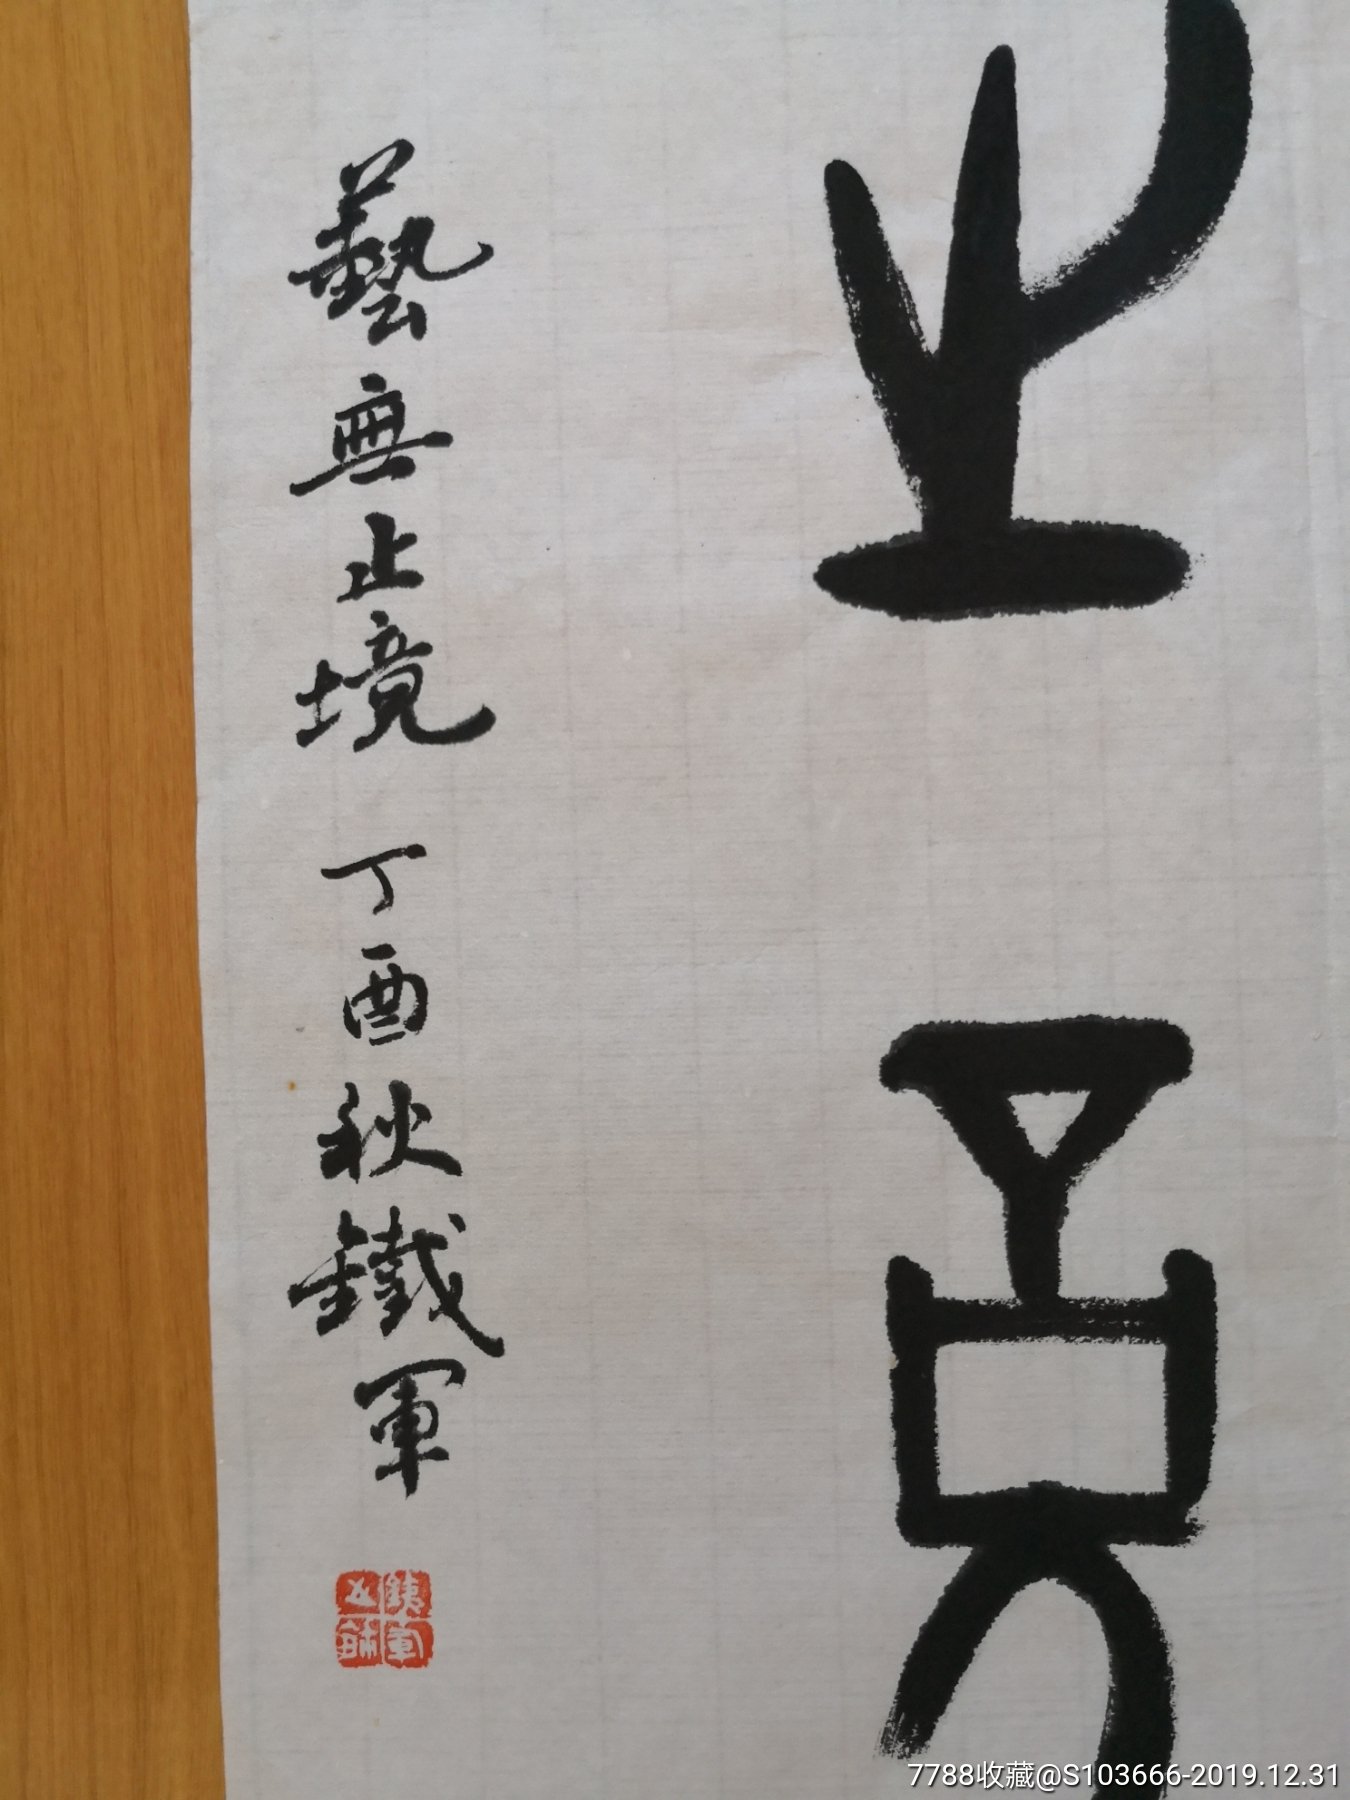 止竟
藝無止境 丁酉秋鐵軍
7788收藏@S103666-2019.12.31